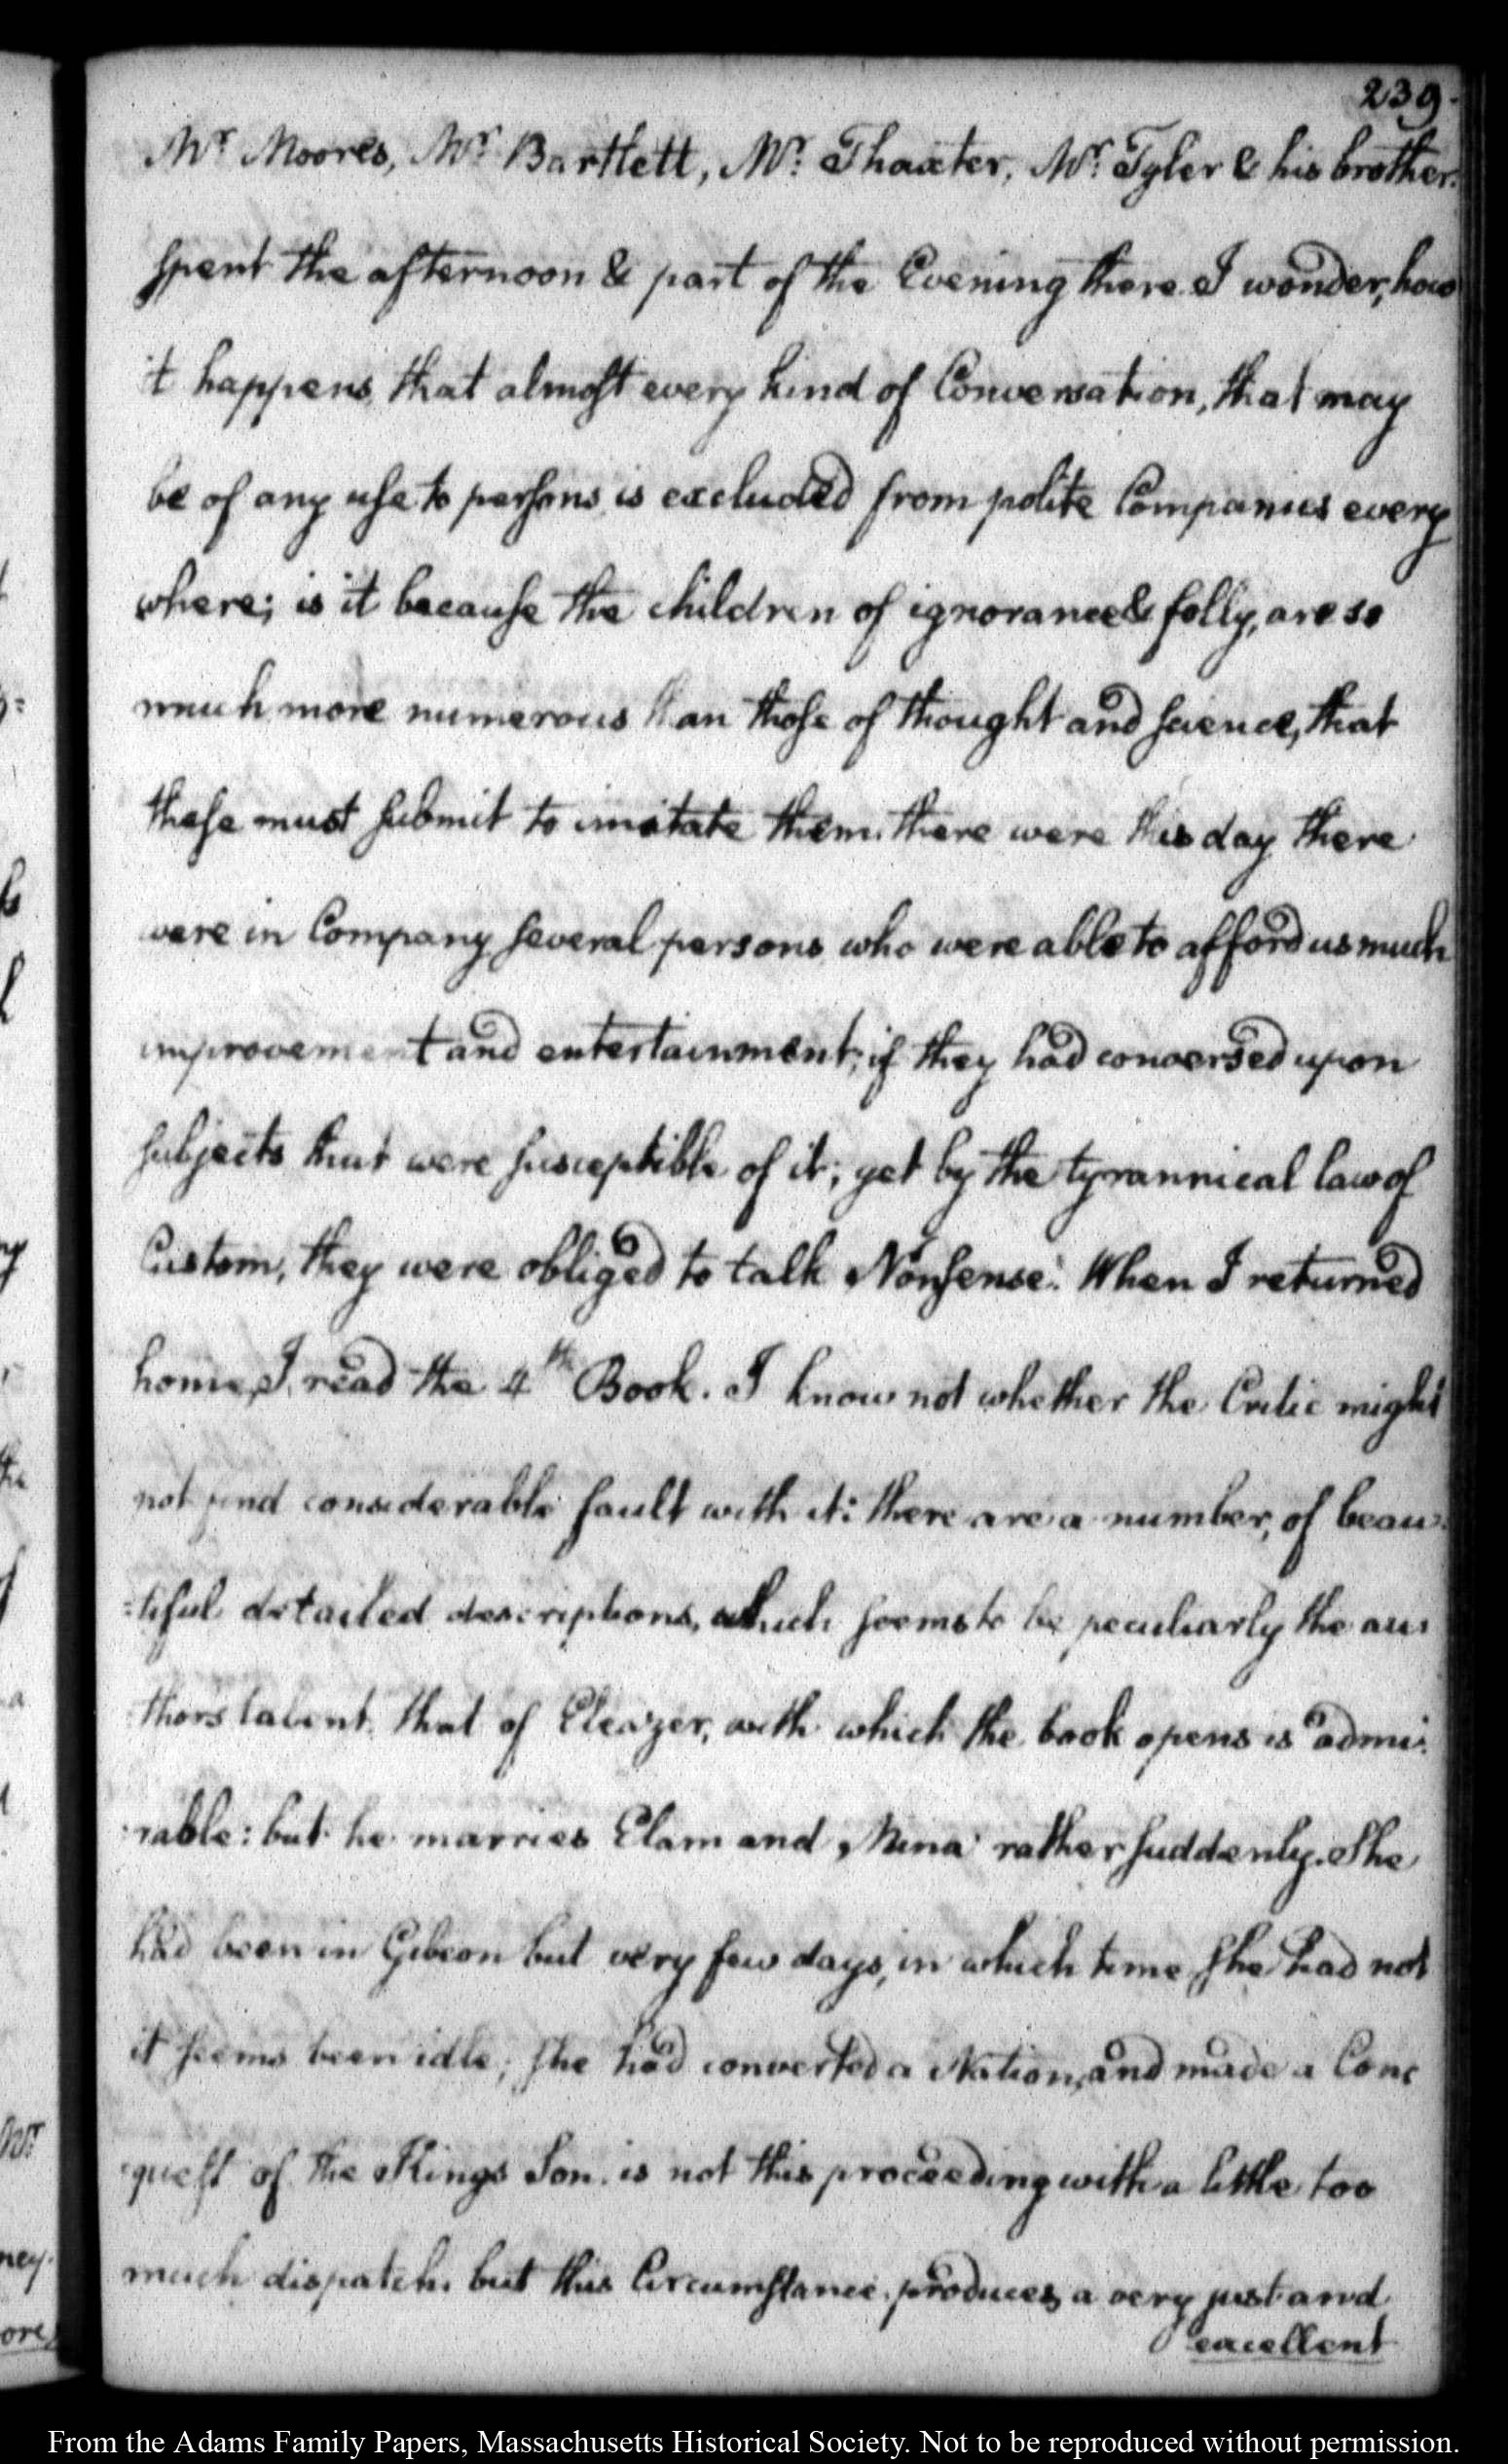 239.
Mr. Moores, Mr. Bartlett, Mr. Thaxter, Mr. Tyler & his brother.
spent the afternoon & part of the Evening there. I wonder, how
it happens, that almost every kind of Conversation, that may
be of any use to persons, is excluded from polite Companies every
where; is it because the children of ignorance & folly, are so
much more numerous than those of thought and science, that
these must submit to imitate them. there were this day there
were in Company several persons, who were able to afford us much
improvement and entertainment; if they had conversed upon
subjects that were susceptible of it; yet by the tyrannical law of
Custom, they were obliged to talk Nonsense. When I returned
home, I read the 4th Book. I know not whether the Critic might
not find considerable fault with it: there are a number, of beau
=tiful detailed descriptions, which seems to be peculiarly the au
thors talent. that of Eleazer, with which the book opens is admi
rable: but he marries Elam and Mina rather suddenly. She
had been in Gibeon but very few days, in which time she had not
it seems been idle; she had converted a Nation, and made a Con
quest of the Kings Son. is not this proceeding with a little too
much dispatch. but this Circumstance produces a very just and
excellent
From the Adams Family Papers, Massachusetts Historical Society. Not to be reproduced without permission.